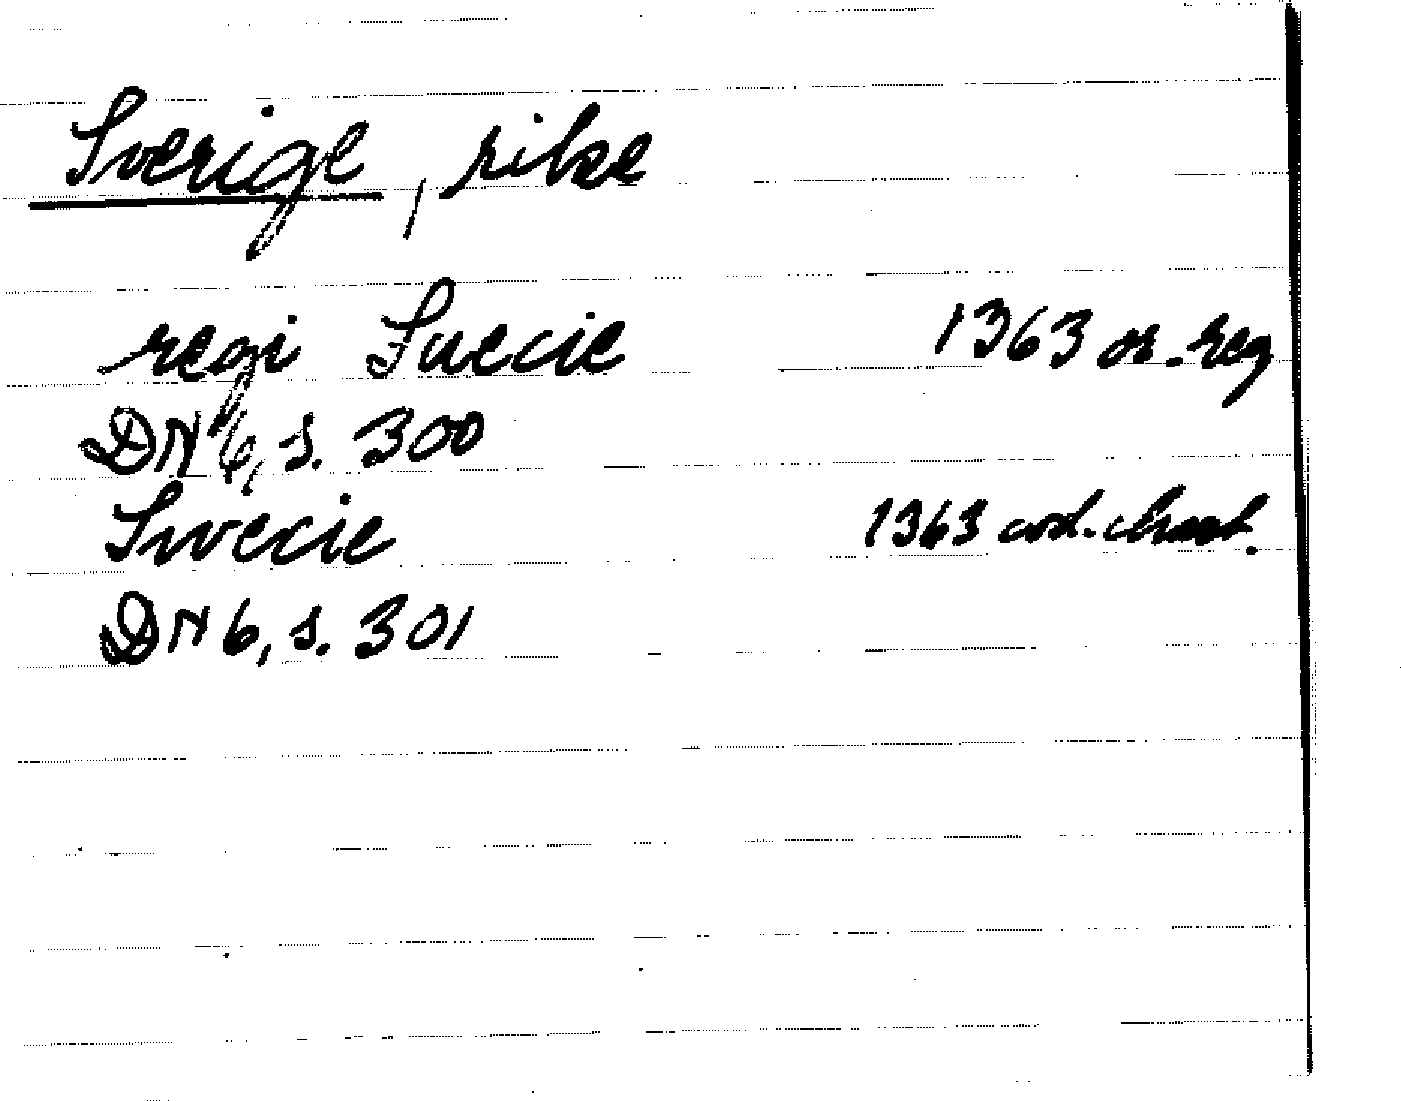 Sverige, rike
regi Suecie 1363 or. reg
DN 6, s. 300
Swecie 1363 cod. chart.
DN 6, s. 301